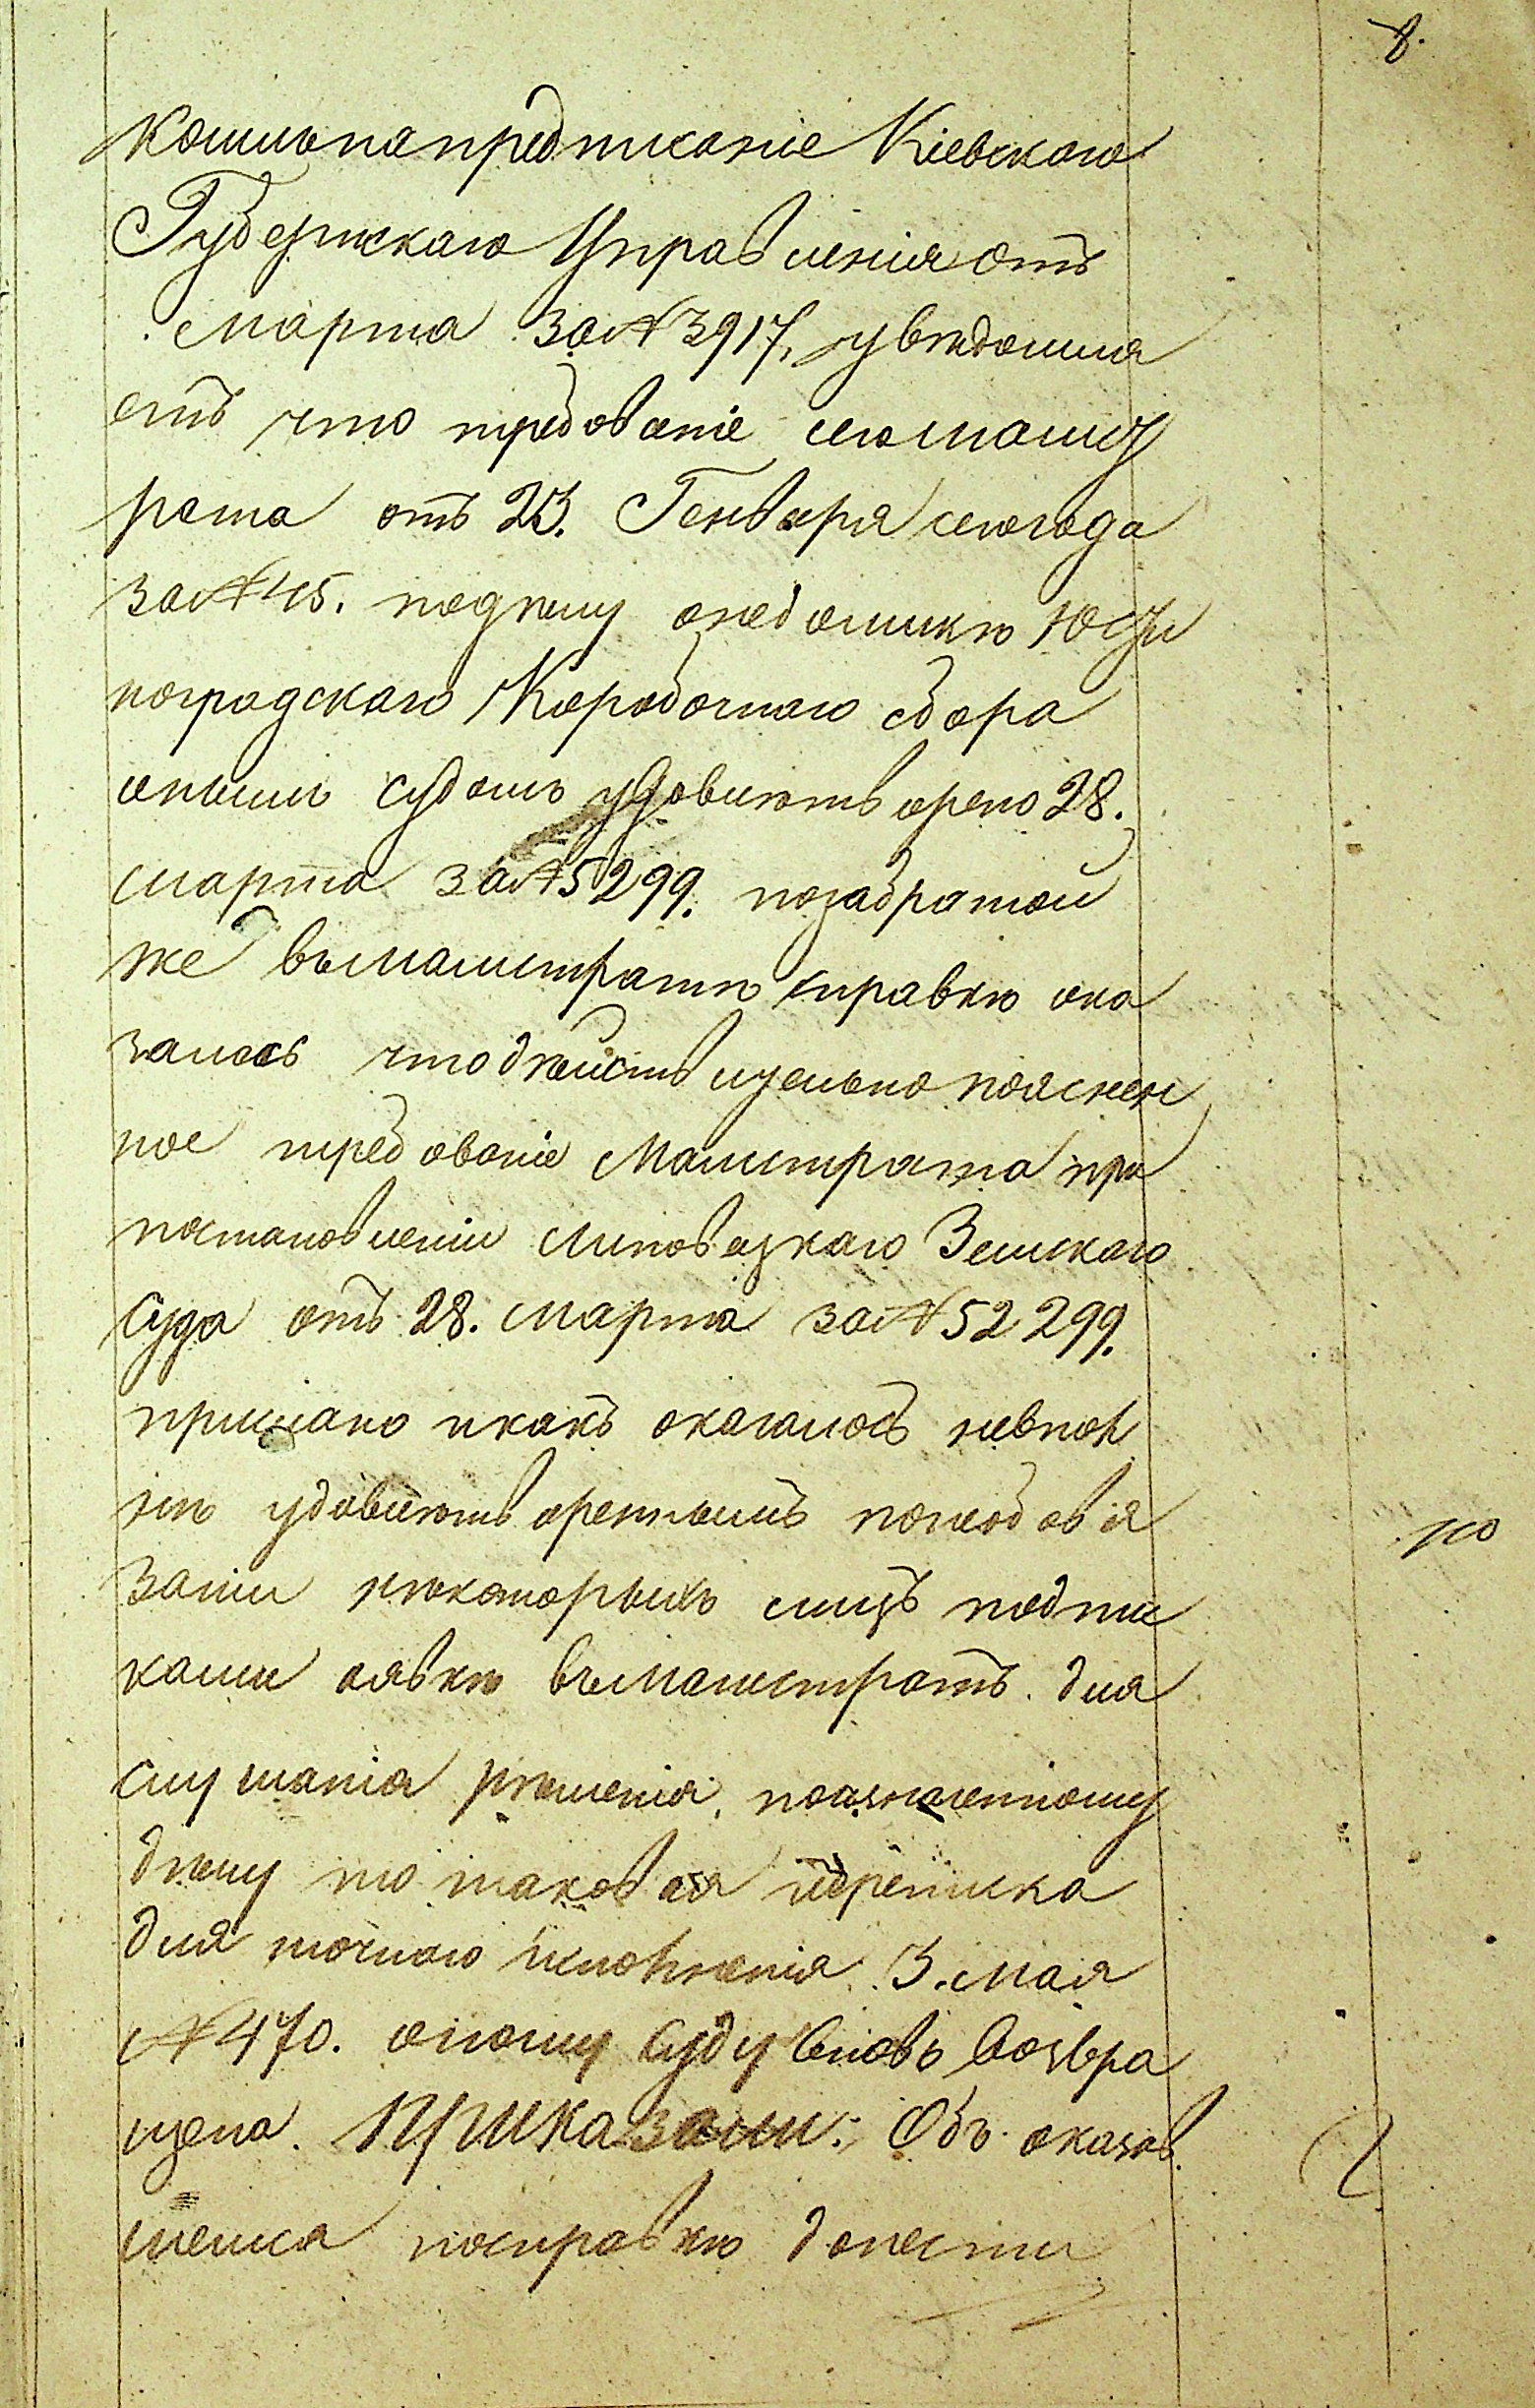 8.
коимъ на предписаніе Кіевскаго
Губернскаго Управленія отъ
марта за № 3917, увѣдомля
етъ что требованіе сего маги
рата отъ 23. Генваря сего года
за № 45. по дѣлу о недоимкѣ
ноградскаго Коробочнаго сбора
онымъ судомъ удовлетворено 28.
марта за № 5299. по забратой
же въ магистратѣ справкѣ ока
залось что дѣйствительно пояснен
ное требованіе Магистрата при
постановленіи Липовецкаго Земскаго
Суда отъ 28. марта за № 52299.
прислано и какъ оказалось невпол
нѣ удовлетвореннымъ по необ обя
заніи нѣкоторыхъ лицъ подпи
ками о явкѣ въ магистратъ для
слушанія рѣшенія, по означенному
дѣлу то таковая переписка
для точнаго исполненія 3. мая
№ 470. оному Суду вновь возвра
щена. Приказали: Объ оказав
шемся по справкѣ донести